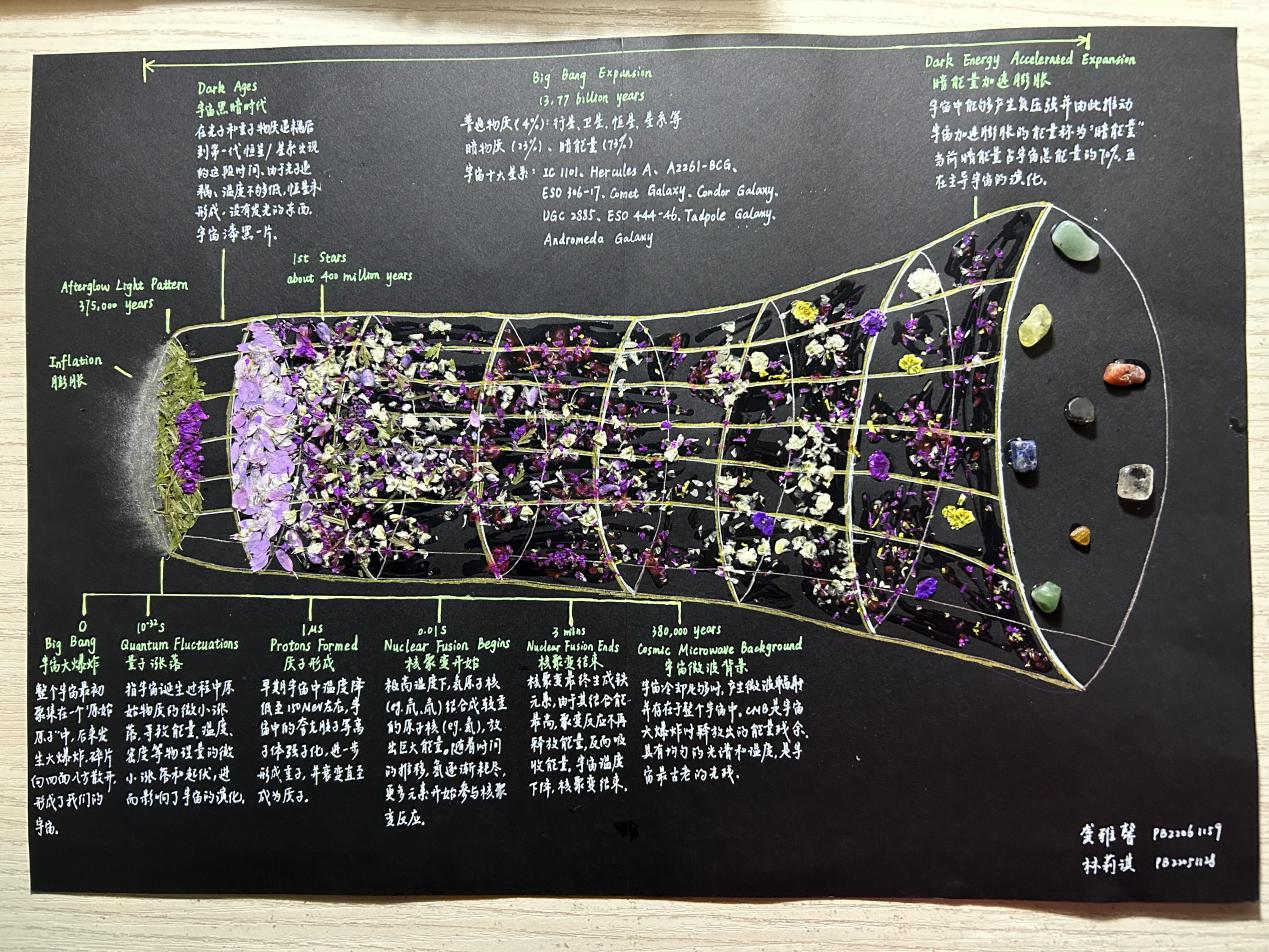 Dark Ages
宇宙黑暗时代
在光子和重子物质退耦后
到第一代恒星/星系出现
的这段时间,由于光子退
耦、温度不够低,恒星未
形成,没有发光的东西,
宇宙漆黑一片。
Big Bang Expansion
13.77 billion years
普通物质(4%):行星、卫星、恒星、星系等
暗物质(23%)、暗能量(73%)
宇宙十大星系:IC 1101、Hercules A、A2261-BCG、
ESO 306-17、Comet Galaxy、Condor Galaxy、
UGC 2885、ESO 444-46、Tadpole Galaxy、
Andromeda Galaxy
Dark Energy Accelerated Expansion
暗能量加速膨胀
宇宙中能够产生负压强并由此推动
宇宙加速膨胀的能量称为"暗能量"
当前暗能量占宇宙总能量的70%,正
在主导宇宙的演化。
1st Stars
about 400 million years
Afterglow Light Pattern
375,000 years
Inflation
膨胀
0
Big Bang
宇宙大爆炸
整个宇宙最初
聚集在一个"原始
原子"中,后来发
生大爆炸,碎片
向四面八方散开,
形成了我们的
宇宙。
10⁻³²s
Quantum Fluctuations
量子涨落
指宇宙诞生过程中原
始物质的微小涨
落,导致能量、温度、
密度等物理量的微
小涨落和起伏,进
而影响了宇宙的演化。
1μs
Protons Formed
质子形成
早期宇宙中温度降
低至150MeV左右,宇
宙中的夸克胶子等离
子体强子化,进一步
形成重子,并衰变直至
成为质子。
0.01s
Nuclear Fusion Begins
核聚变开始
极高温度下,氢原子核
(eg.氘、氚)结合成较重
的原子核(eg.氦),放
出巨大能量。随着时间
的推移,氢逐渐耗尽,
更多元素开始参与核聚
变反应。
3 mins
Nuclear Fusion Ends
核聚变结束
核聚变最终生成铁
元素,由于其结合能
最高,聚变反应不再
释放能量,反而吸
收能量,宇宙温度
下降,核聚变结束。
380,000 years
Cosmic Microwave Background
宇宙微波背景
宇宙冷却足够时,产生微波辐射
并存在于整个宇宙中。CMB是宇宙
大爆炸时释放出的能量残余,
具有均匀的光谱和温度,是宇
宙最古老的光线。
雅馨 PB22061159
林莉淇 PB22051128